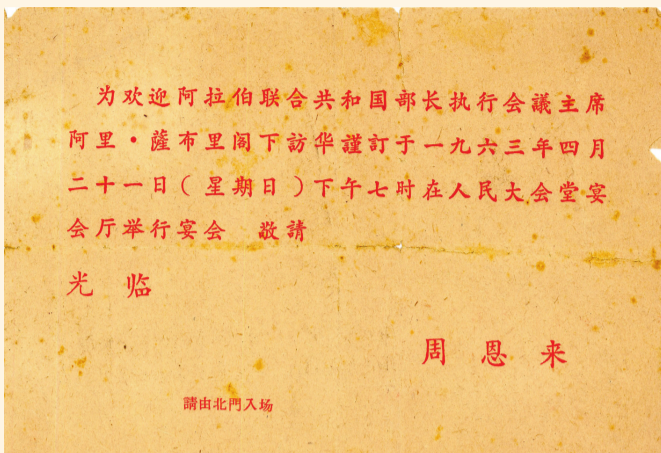 为欢迎阿拉伯联合共和国部长执行会議主席
阿里·薩布里阁下訪华謹訂于一九六三年四月
二十一日（星期日）下午七时在人民大会堂宴
会厅举行宴会　敬請
光　临
周　恩　来
請由北門入场